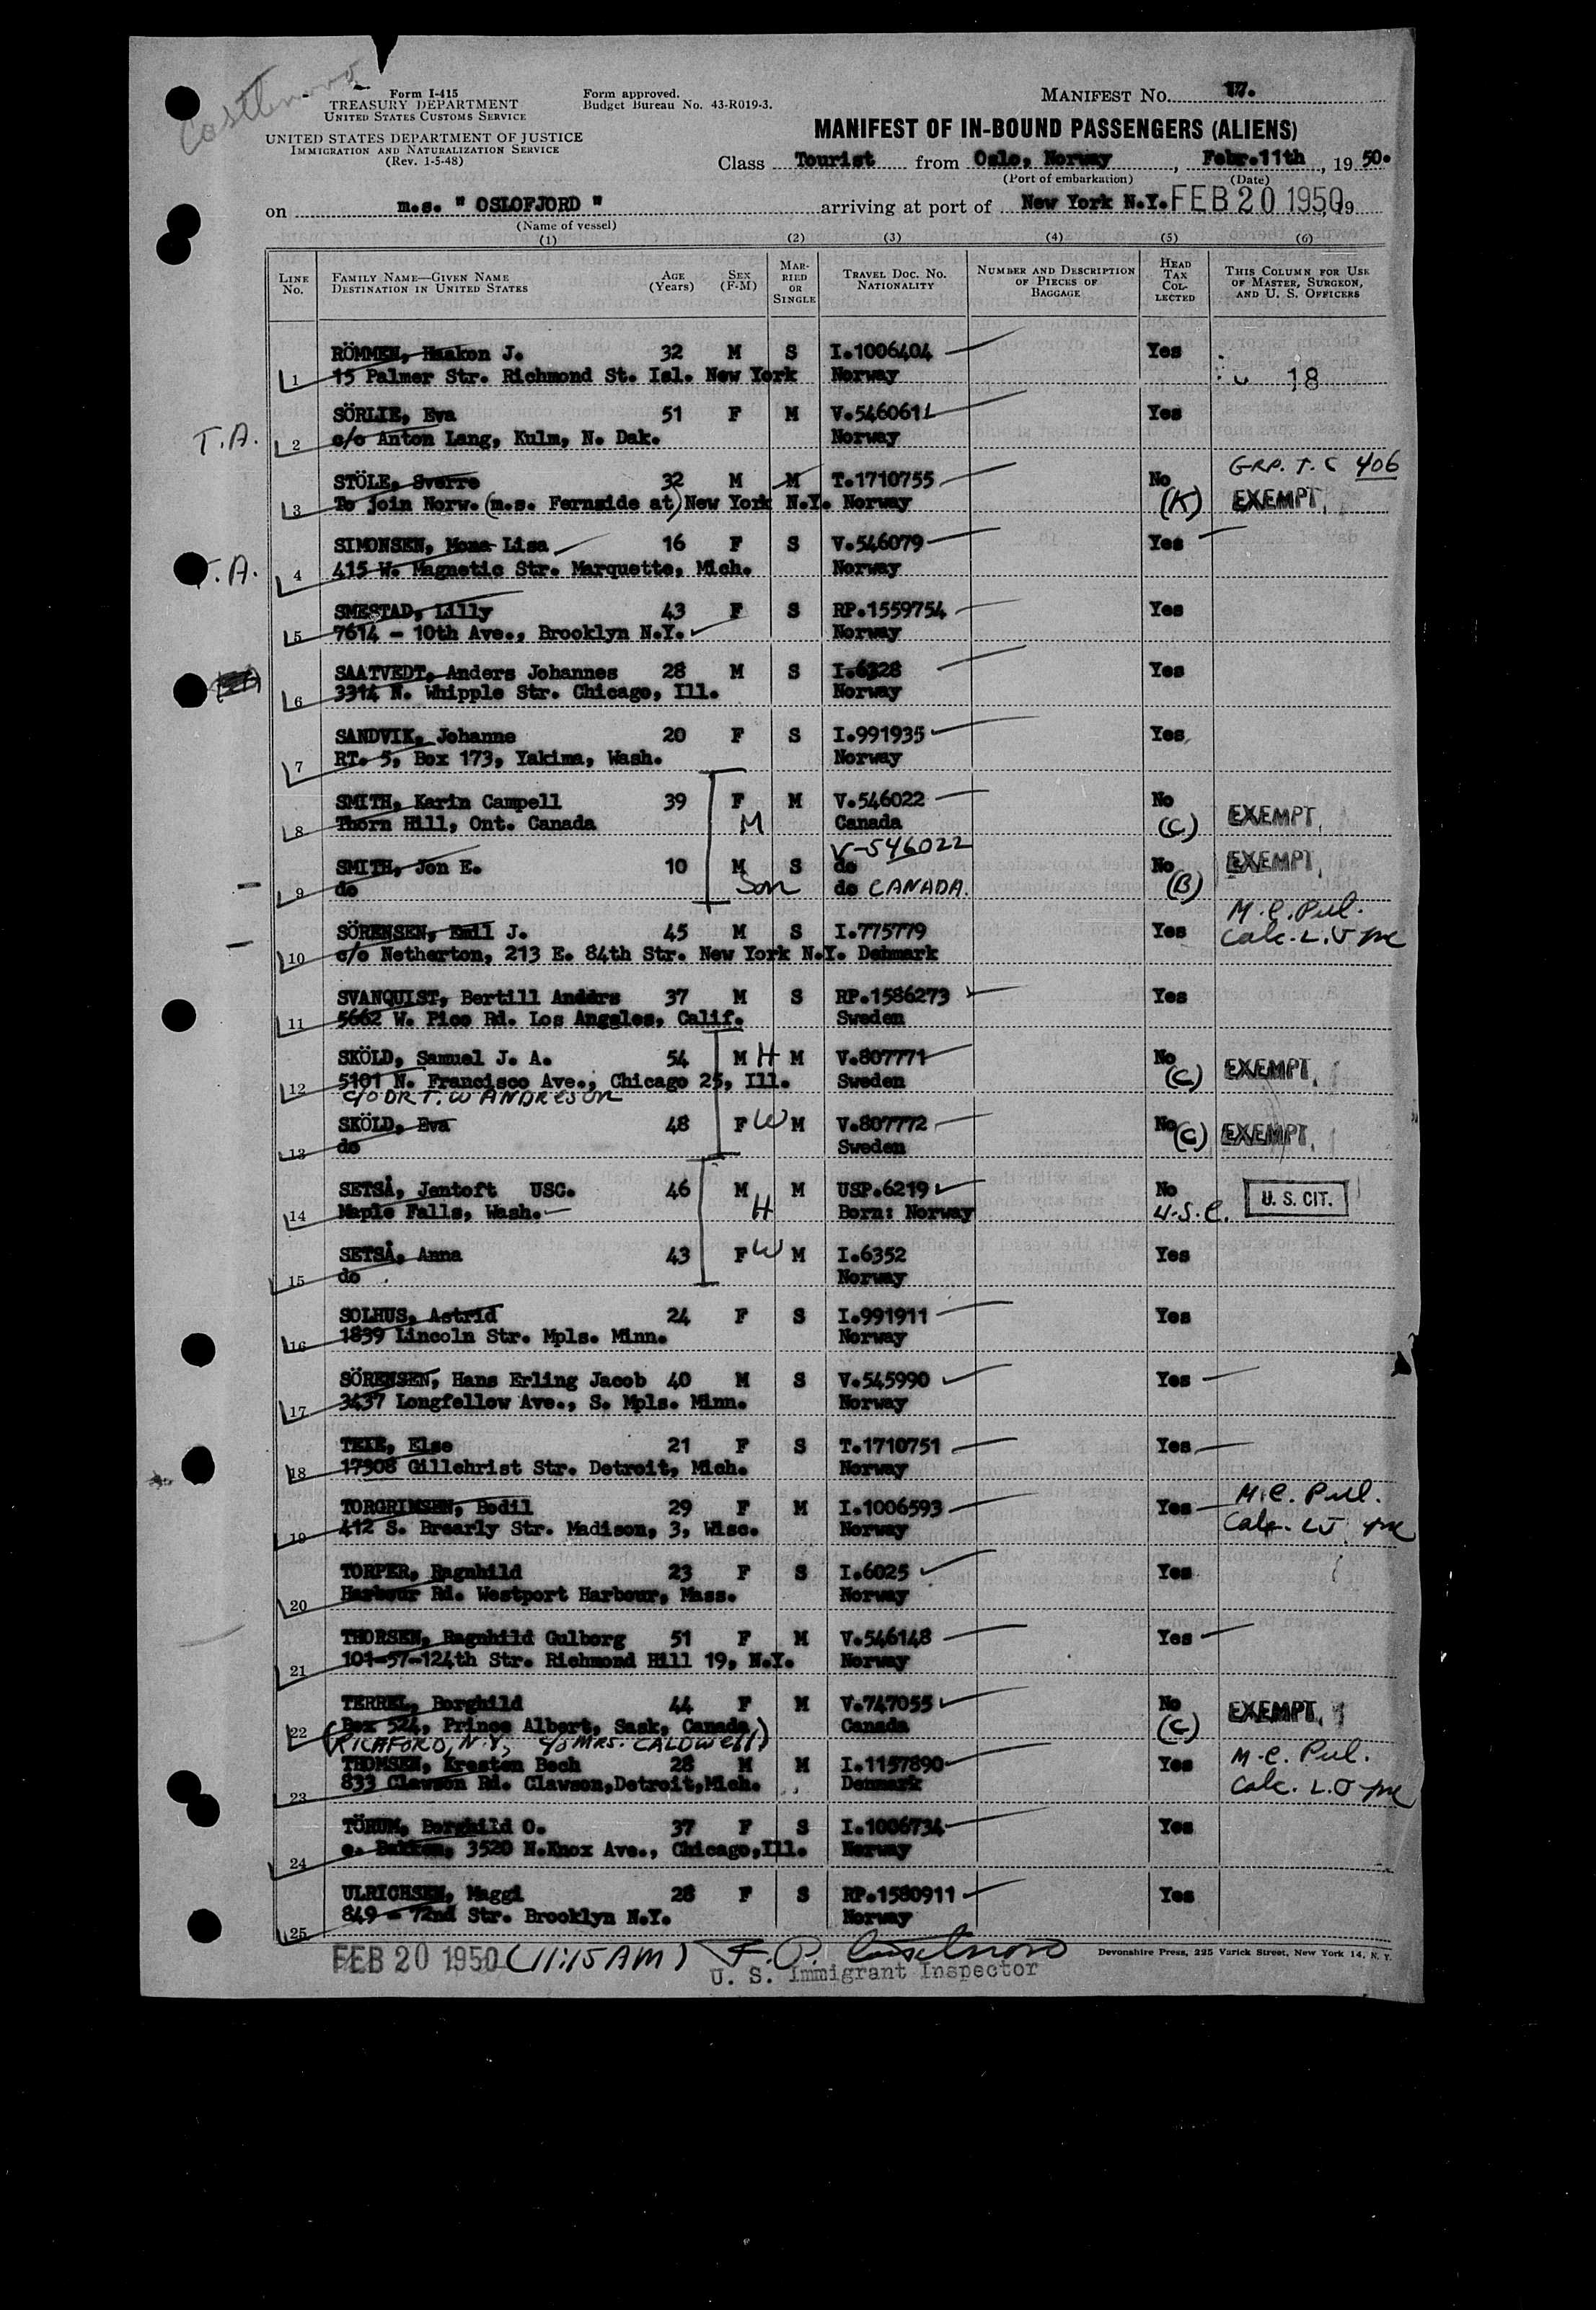 Form I-415
TREASURY DEPARTMENT
UNITED STATES CUSTOMS SERVICE
UNITED STATES DEPARTMENT OF JUSTICE
IMMIGRATION AND NATURALIZATION SERVICE
(Rev. 1-5-48)
Form approved.
Budget Bureau No. 43-R019-3.
MANIFEST NO. 17.
MANIFEST OF IN-BOUND PASSENGERS (ALIENS)
Class Tourist from Oslo, Norway, Febr.11th, 19 50.
(Port of embarkation) (Date)
on m.s. " OSLOFJORD " arriving at port of New York N.Y. FEB 20 1950, 19
(Name of vessel)
(1) (2) (3) (4) (5) (6)
LINE NO. FAMILY NAME—GIVEN NAME DESTINATION IN UNITED STATES AGE (Years) SEX (F-M) MARRIED OR SINGLE TRAVEL DOC. NO. NATIONALITY NUMBER AND DESCRIPTION OF PIECES OF BAGGAGE HEAD TAX COLLECTED THIS COLUMN FOR USE OF MASTER, SURGEON, AND U. S. OFFICERS
RÖMMEN, Haakon J. 32 M S I.1006404 Yes
1 15 Palmer Str. Richmond St. Isl. New York Norway 18
SÖRLIE, Eva 51 F M V.546061 Yes
T.A. 2 c/o Anton Lang, Kulm, N. Dak. Norway
STÖLE, Sverre 32 M M T.1710755 No GRP. T. C 406
3 To join Norw. (m.s. Fernside at) New York N.Y. Norway (K) EXEMPT
SIMONSEN, Mona Lisa 16 F S V.546079 Yes
T.A. 4 415 W. Magnetic Str. Marquette, Mich. Norway
SMESTAD, Lilly 43 F S RP.1559754 Yes
5 7614 - 10th Ave., Brooklyn N.Y. Norway
SAATVEDT, Anders Johannes 28 M S I.6328 Yes
6 3314 N. Whipple Str. Chicago, Ill. Norway
SANDVIK, Johanne 20 F S I.991935 Yes
7 RT. 5, Box 173, Yakima, Wash. Norway
SMITH, Karin Campell 39 F M V.546022 No
8 Thorn Hill, Ont. Canada M Canada (C) EXEMPT
V-546022
SMITH, Jon E. 10 M S do No EXEMPT
9 do Son do CANADA. (B)
SÖRENSEN, Emil J. 45 M S I.775779 Yes M.C. Pul.
10 c/o Netherton, 213 E. 84th Str. New York N.Y. Denmark
SVANQUIST, Bertill Anders 37 M S RP.1586273 Yes
11 5662 W. Pico Rd. Los Angeles, Calif. Sweden
SKÖLD, Samuel J. A. 54 M H M V.807771 No
12 5101 N. Francisco Ave., Chicago 25, Ill. Sweden (C) EXEMPT
C/O DR T. W ANDRESON
SKÖLD, Eva 48 F W M V.807772 No (C) EXEMPT
13 do Sweden
SETSÅ, Jentoft USC. 46 M M USP.6219 No U. S. CIT.
14 Maple Falls, Wash. H Born: Norway U.S.C.
SETSÅ, Anna 43 F W M I.6352 Yes
15 do Norway
SOLHUS, Astrid 24 F S I.991911 Yes
16 1839 Lincoln Str. Mpls. Minn. Norway
SÖRENSEN, Hans Erling Jacob 40 M S V.545990 Yes
17 3437 Longfellow Ave., S. Mpls. Minn. Norway
TEIE, Else 21 F S T.1710751 Yes
18 17308 Gillchrist Str. Detroit, Mich. Norway
TORGRIMSEN, Bodil 29 F M I.1006593 Yes M.C. Pul.
19 412 S. Brearly Str. Madison, 3, Wisc. Norway
TORPER, Ragnhild 23 F S I.6025 Yes
20 Harbour Rd. Westport Harbour, Mass. Norway
THORSEN, Ragnhild Gulborg 51 F M V.546148 Yes
21 101-57-124th Str. Richmond Hill 19, N.Y. Norway
TERREL, Borghild 44 F M V.747055 No EXEMPT
22 (Box 524, Prince Albert, Sask, Canada) Canada (C)
(RICHFORD, N.Y., c/o MRS. CALDWELL)
THOMSEN, Kresten Bech 28 M M I.1157890 Yes M.C. Pul.
23 833 Clawson Rd. Clawson,Detroit,Mich. Denmark
TÖRUM, Borghild O. 37 F S I.1006734 Yes
24 c. Bakken, 3520 N.Knox Ave., Chicago,Ill. Norway
ULRICHSEN, Maggi 28 F S RP.1580911 Yes
25 849 - 72nd Str. Brooklyn N.Y. Norway
FEB 20 1950 (11:15 AM) F. P.
U. S. Immigrant Inspector
Devonshire Press, 225 Varick Street, New York 14, N. Y.